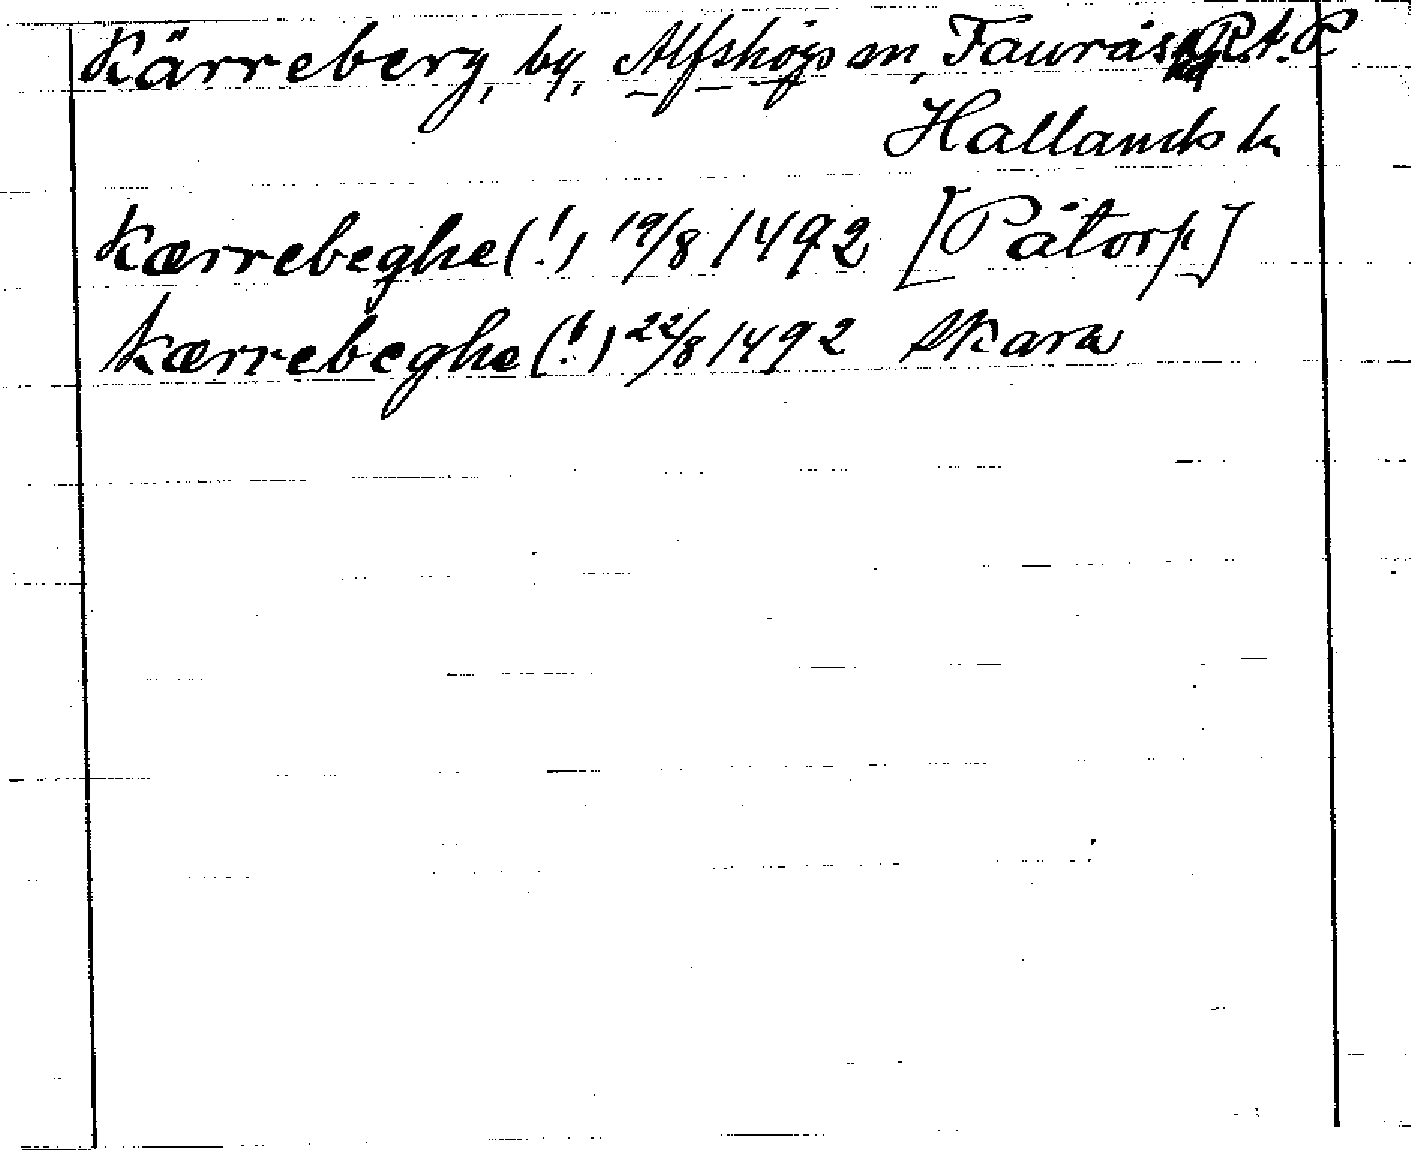 Kärreberg, by, Alfshögs sn, Faurås R.A. P
Hallands l.
Kærrebeghe (!) 19/8 1492 [Påtorp]
Kærrebeghe (!) 22/8 1492 Skara